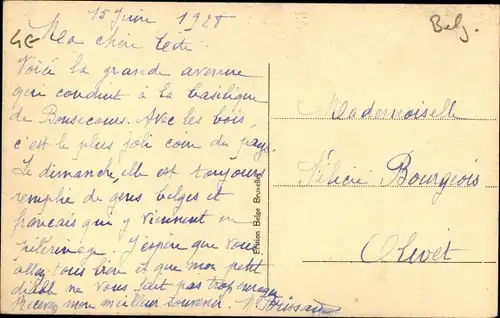 15 Juin 1928
Belg.
GE
Ma chère Titite
Voici la grande avenue
qui conduit à la basilique
de Bonsecours. Avec les bois,
c'est le plus joli coin du pays.
Le dimanche, elle est toujours
remplie de gens belges et
français qui y viennent en
pèlerinage. J'espère que vous
allez tous bien et que mon petit
diable ne vous fait pas trop enrager
Recevez mon meilleur souvenir.
Edition Belge Bruxelles
Mademoiselle
Félicie Bourgeois
Olivet